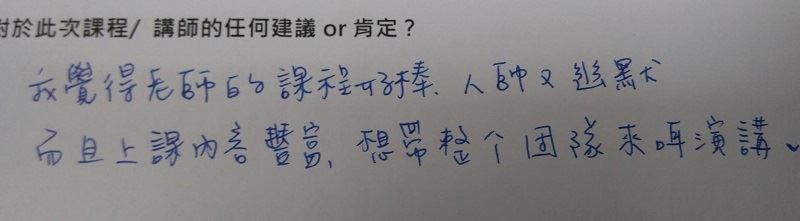 對於此次課程/ 講師的任何建議 or 肯定？
我覺得老師的課程好棒. 人帥又幽默
而且上課內容豐富, 想帶整个团隊來听演講、